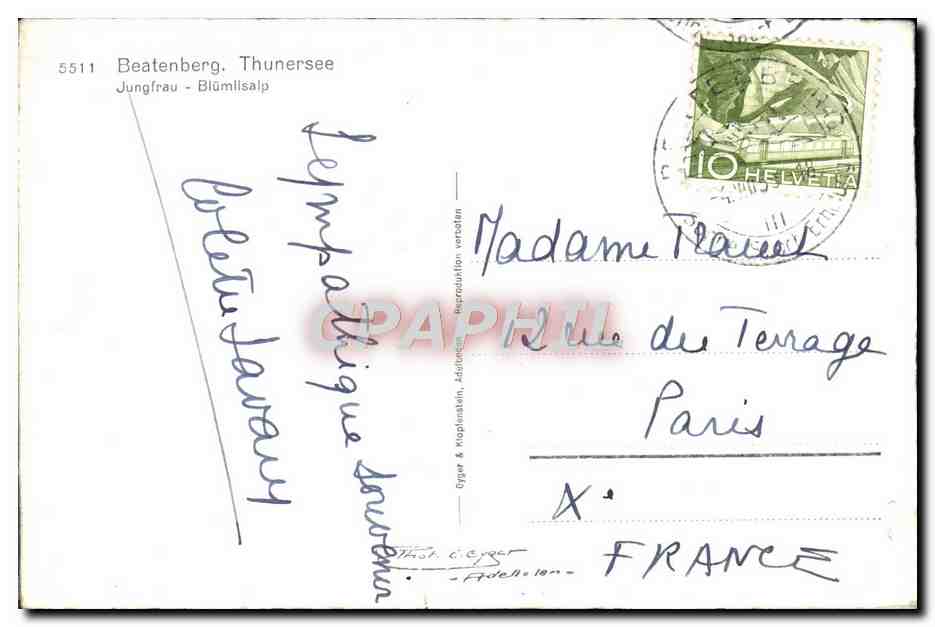 5511 Beatenberg. Thunersee
Jungfrau - Blümlisalp
Sympathique souvenir
Colette
Gyger & Klopfenstein, Adelboden Reproduktion verboten
Phot. E. Gyger
- Adelboden -
10 HELVETIA
III
CPAPHIL
Madame
12 rue du Terrage
Paris
X.
FRANCE